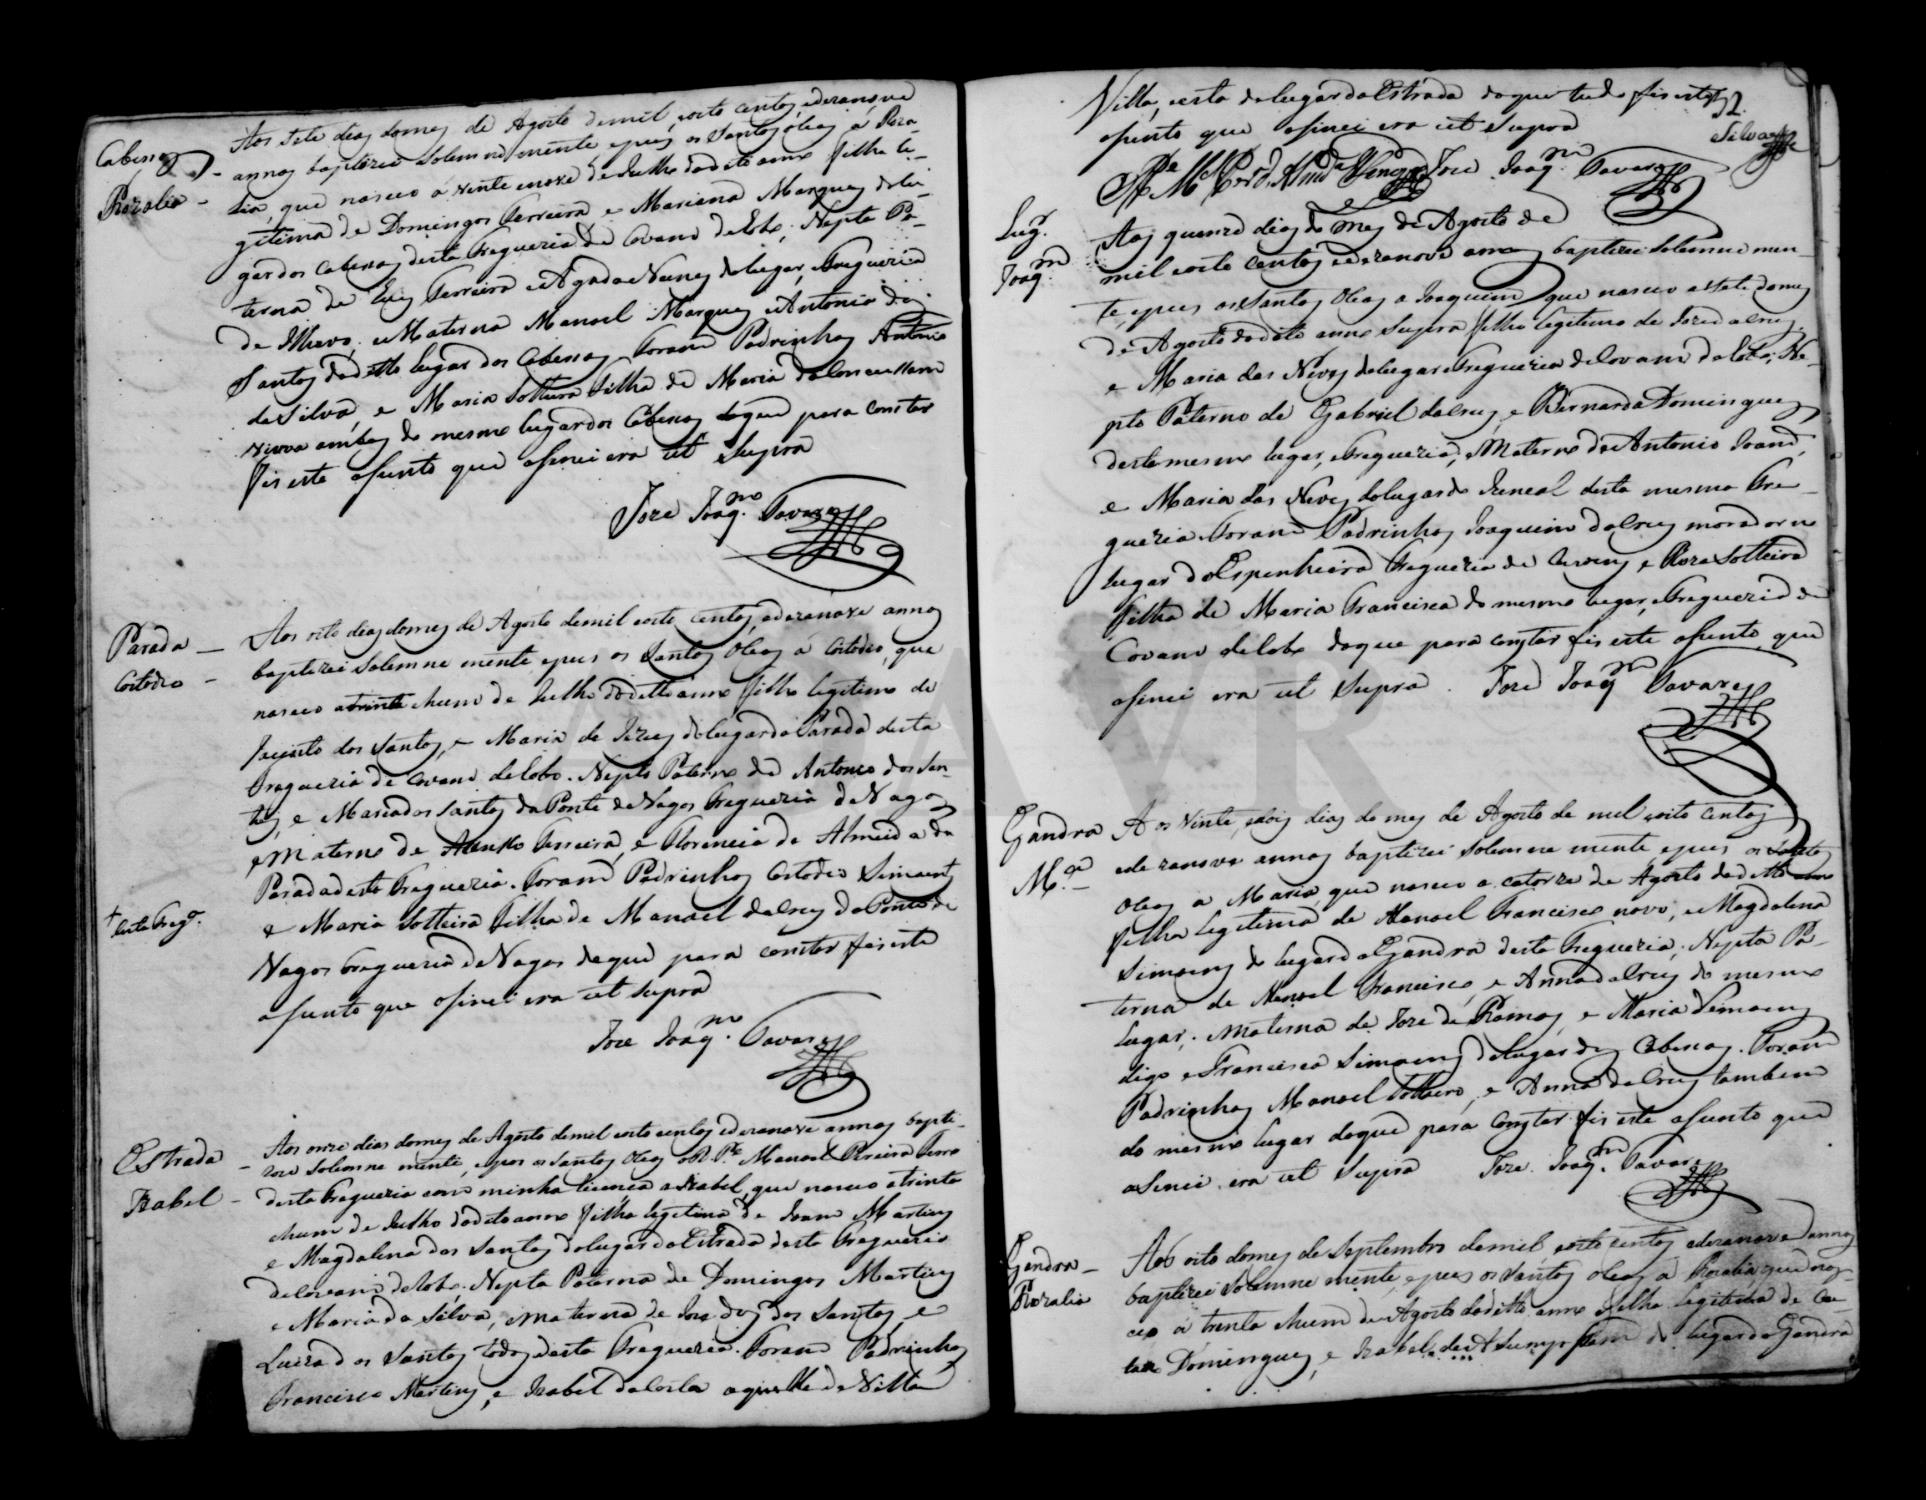 Cabessas
Rozalia
Aos sete dias do mes de Agosto de mil, e oito centos, e dezanove
annos baptizei solemne mente e pus os Santos óleos á Roza-
lia, que nasceo a vinte e nove de Julho do dito anno filha le-
gitima de Domingos Ferreira e Mariana Marques do lu-
gar dos Cabessas desta Freguezia de Covam de lobo; Nepta Pa-
terna de Luis Ferreira e Agada Nunes do lugar, e Freguezia
de Ilhavo; e Materna Manoel Marques e Antonia dos
Santos do ditto lugar dos Cabessas foram Padrinhos Antonio
da Silva, e Maria solteira filha de Maria da Conceissam
viuva ambos do mesmo lugar dos Cabessas do que para constar
fis este asunto que asinei era ut supra
Joze Joaq.m Tavares
Parada
Costodio
Aos oito dias do mes de Agosto de mil e oito centos, e dezanove annos
baptizei solemne mente, e pus os Santos Oleos á Costodio, que
nasceo a trinta e hum de Julho do ditto anno filho legitimo de
Jacinto dos Santos, e Maria de Jezus do lugar da Parada desta
Freguezia de Covam de lobo. Nepto Paterno de Antonio dos San-
tos, e Maria dos Santos da Ponte de Vagos Freguezia de Vagos
e Materno de Ferreira, e Florencia de Almeida da
Parada desta Freguezia. Foram Padrinhos Costodio Simoens
e Maria Solteira filha de Manoel da Cruz da Ponte de
+
desta Freg.a
Vagos Freguezia de Vagos do que para constar fis este
asunto que asinei era ut supra
Joze Joaq.m Tavares
Estrada
Izabel
Aos onze dias do mes de Agosto de mil e oito centos e dezanove annos bapti-
zou solemne mente, e pos os Santos Oleos o R. P.e Manoel Pereira
desta Freguezia com minha licenca a Izabel, que nasceo a trinta
e hum de Julho do dito anno filha legitima de Joam Martins
e Magdalena dos Santos do lugar da Estrada desta Freguezia
de Covam de lobo. Nepta Paterna de Domingos Martins
e Maria da Silva, e materna de dos Santos e
Luiza dos Santos todos desta Freguezia. Foram Padrinhos
Francisco Martins, e Izabel da Costa aquelle da Villa
52.
Silva
Villa, e esta do lugar da Estrada do que tudo fis este
asunto que asinei era ut supra
Joze Joaq.m Tavares
Lug.
Joaq.m
Aos quinze dias do mes de Agosto de
mil e oito centos e dezanove annos baptizei solemne men-
te, e pus os Santos Oleos a Joaquim que nasceo a sete do mes
de Agosto do dito anno supra filho legitimo de Joze da Cruz
e Maria das Neves do lugar e Freguezia de Covam de lobo; Ne-
pto Paterno de Gabriel da Cruz, e Bernarda Domingues
deste mesmo lugar, e Freguezia, e Materno de Antonio Joam,
e Maria das Neves do lugar do Juncal desta mesma Fre-
guezia foram Padrinhos Joaquim da Cruz morador no
lugar do Espinheiro Freguezia de e Roza Solteira
filha de Maria Francisca do mesmo lugar, e Freguezia de
Covam de lobo do que para constar fis este asunto, que
asinei era ut supra. Joze Joaq.m Tavares
Gandra
M.a
Aos vinte, e dois dias do mes de Agosto de mil e oito centos
e dezanove annos baptizei solemne mente e pus os santos
Oleos a Maria, que nasceo a catorze de Agosto do ditto anno
filha legitima de Manoel Francisco novo, e Magdalena
Simoens do lugar da Gandra desta Freguezia; Nepta Pa-
terna de Manoel Francisco, e Anna da Cruz do mesmo
lugar; Materna de Joze de Ramos, e Maria Simoens
digo e Francisca Simoens do lugar dos Cabessas. Foram
Padrinhos Manoel Solteiro, e Anna da Cruz tambem
do mesmo lugar do que para constar fis este asunto que
asinei era ut supra Joze Joaq.m Tavares
Gandra
Rozalia
Aos oito do mes de Septembro de mil e oito centos e dezanove annos
baptizei solemne mente, e pus os Santos Oleos á Rozalia que nas-
ceo á trinta e hum de Agosto do ditto anno filha legitima de Cae-
tano Domingues, e Izabel de Asumpssam do lugar da Gandra